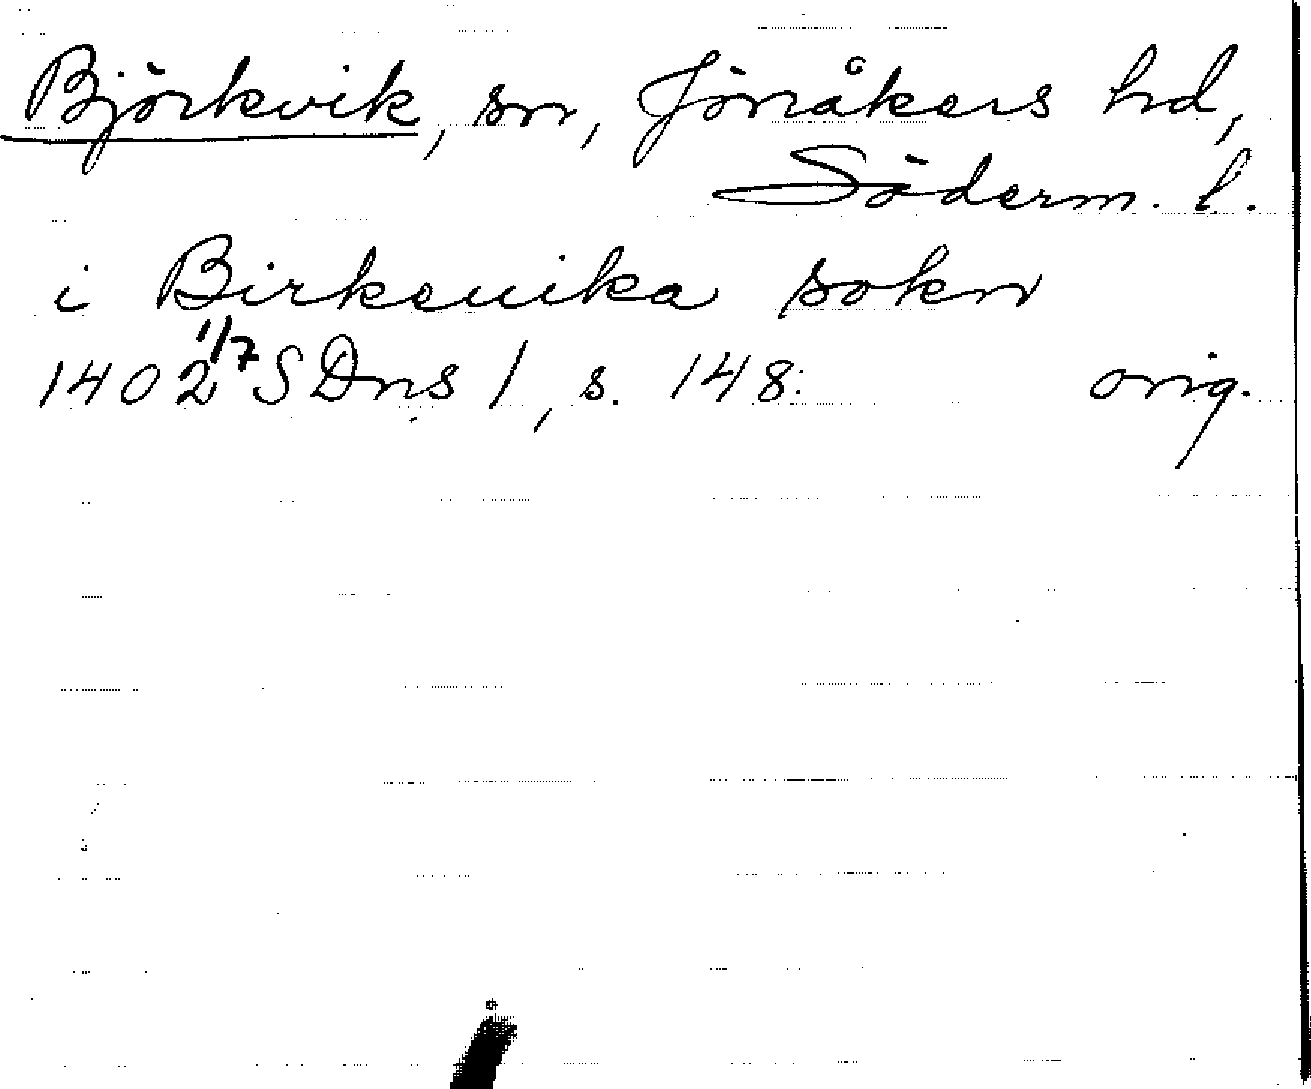 Björkvik, sn, Jönåkers hd,
Söderm. l.
i Birkeuika sokn
1402 1/7 SDns 1, s. 148. orig.